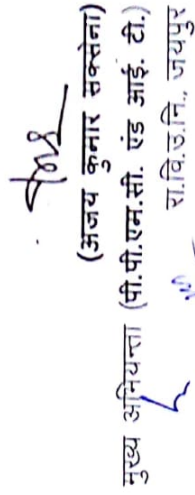 (अजय कुमार सक्सेना)
मुख्य अभियन्ता (पी.पी.एम.सी. एंड आई. टी.)
रा.वि.उ.नि., जयपुर